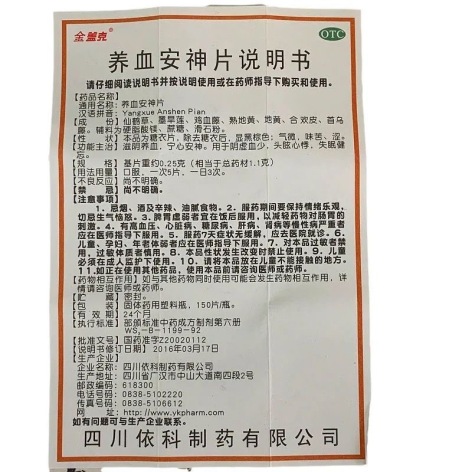 金盟克
OTC
养血安神片说明书
请仔细阅读说明书并按说明使用或在药师指导下购买和使用。
【药品名称】
通用名称：养血安神片
汉语拼音：Yangxue Anshen Pian
【成　　份】仙鹤草、墨旱莲、鸡血藤、熟地黄、地黄、合欢皮、首乌
藤。辅料为硬脂酸镁、蔗糖、滑石粉。
【性　　状】本品为糖衣片，除去糖衣后，显黑棕色；气微，味苦、涩。
【功能主治】滋阴养血，宁心安神。用于阴虚血少，头眩心悸，失眠健
忘。
【规　　格】基片重约0.25克（相当于总药材1.1克）
【用法用量】口服，一次5片，一日3次。
【不良反应】尚不明确。
【禁　　忌】尚不明确。
【注意事项】
1、忌烟、酒及辛辣、油腻食物。2、服药期间要保持情绪乐观，
切忌生气恼怒。3、脾胃虚弱者宜在饭后服用，以减轻药物对肠胃的
刺激。4、有高血压、心脏病、糖尿病、肝病、肾病等慢性病严重者
应在医师指导下服用。5、服药7天症状无缓解，应去医院就诊。6、
儿童、孕妇、年老体弱者应在医师指导下服用。7、对本品过敏者禁
用，过敏体质者慎用。8、本品性状发生改变时禁止使用。9、儿童
必须在成人监护下使用。10、请将本品放在儿童不能接触的地方。
11、如正在使用其他药品，使用本品前请咨询医师或药师。
【药物相互作用】如与其他药物同时使用可能会发生药物相互作用，详
情请咨询医师或药师。
【贮　　藏】密封。
【包　　装】固体药用塑料瓶，150片/瓶。
【有 效 期】24个月
【执行标准】部颁标准中药成方制剂第六册
WS₃-B-1199-92
【批准文号】国药准字Z20020112
【说明书修订日期】2016年03月17日
【生产企业】
企业名称：四川依科制药有限公司
生产地址：四川省广汉市中山大道南四段2号
邮政编码：618300
电话号码：0838-5102220
传真号码：0838-5106612
网　　址：http://www.ykpharm.com
如有问题可与生产企业联系。
四川依科制药有限公司